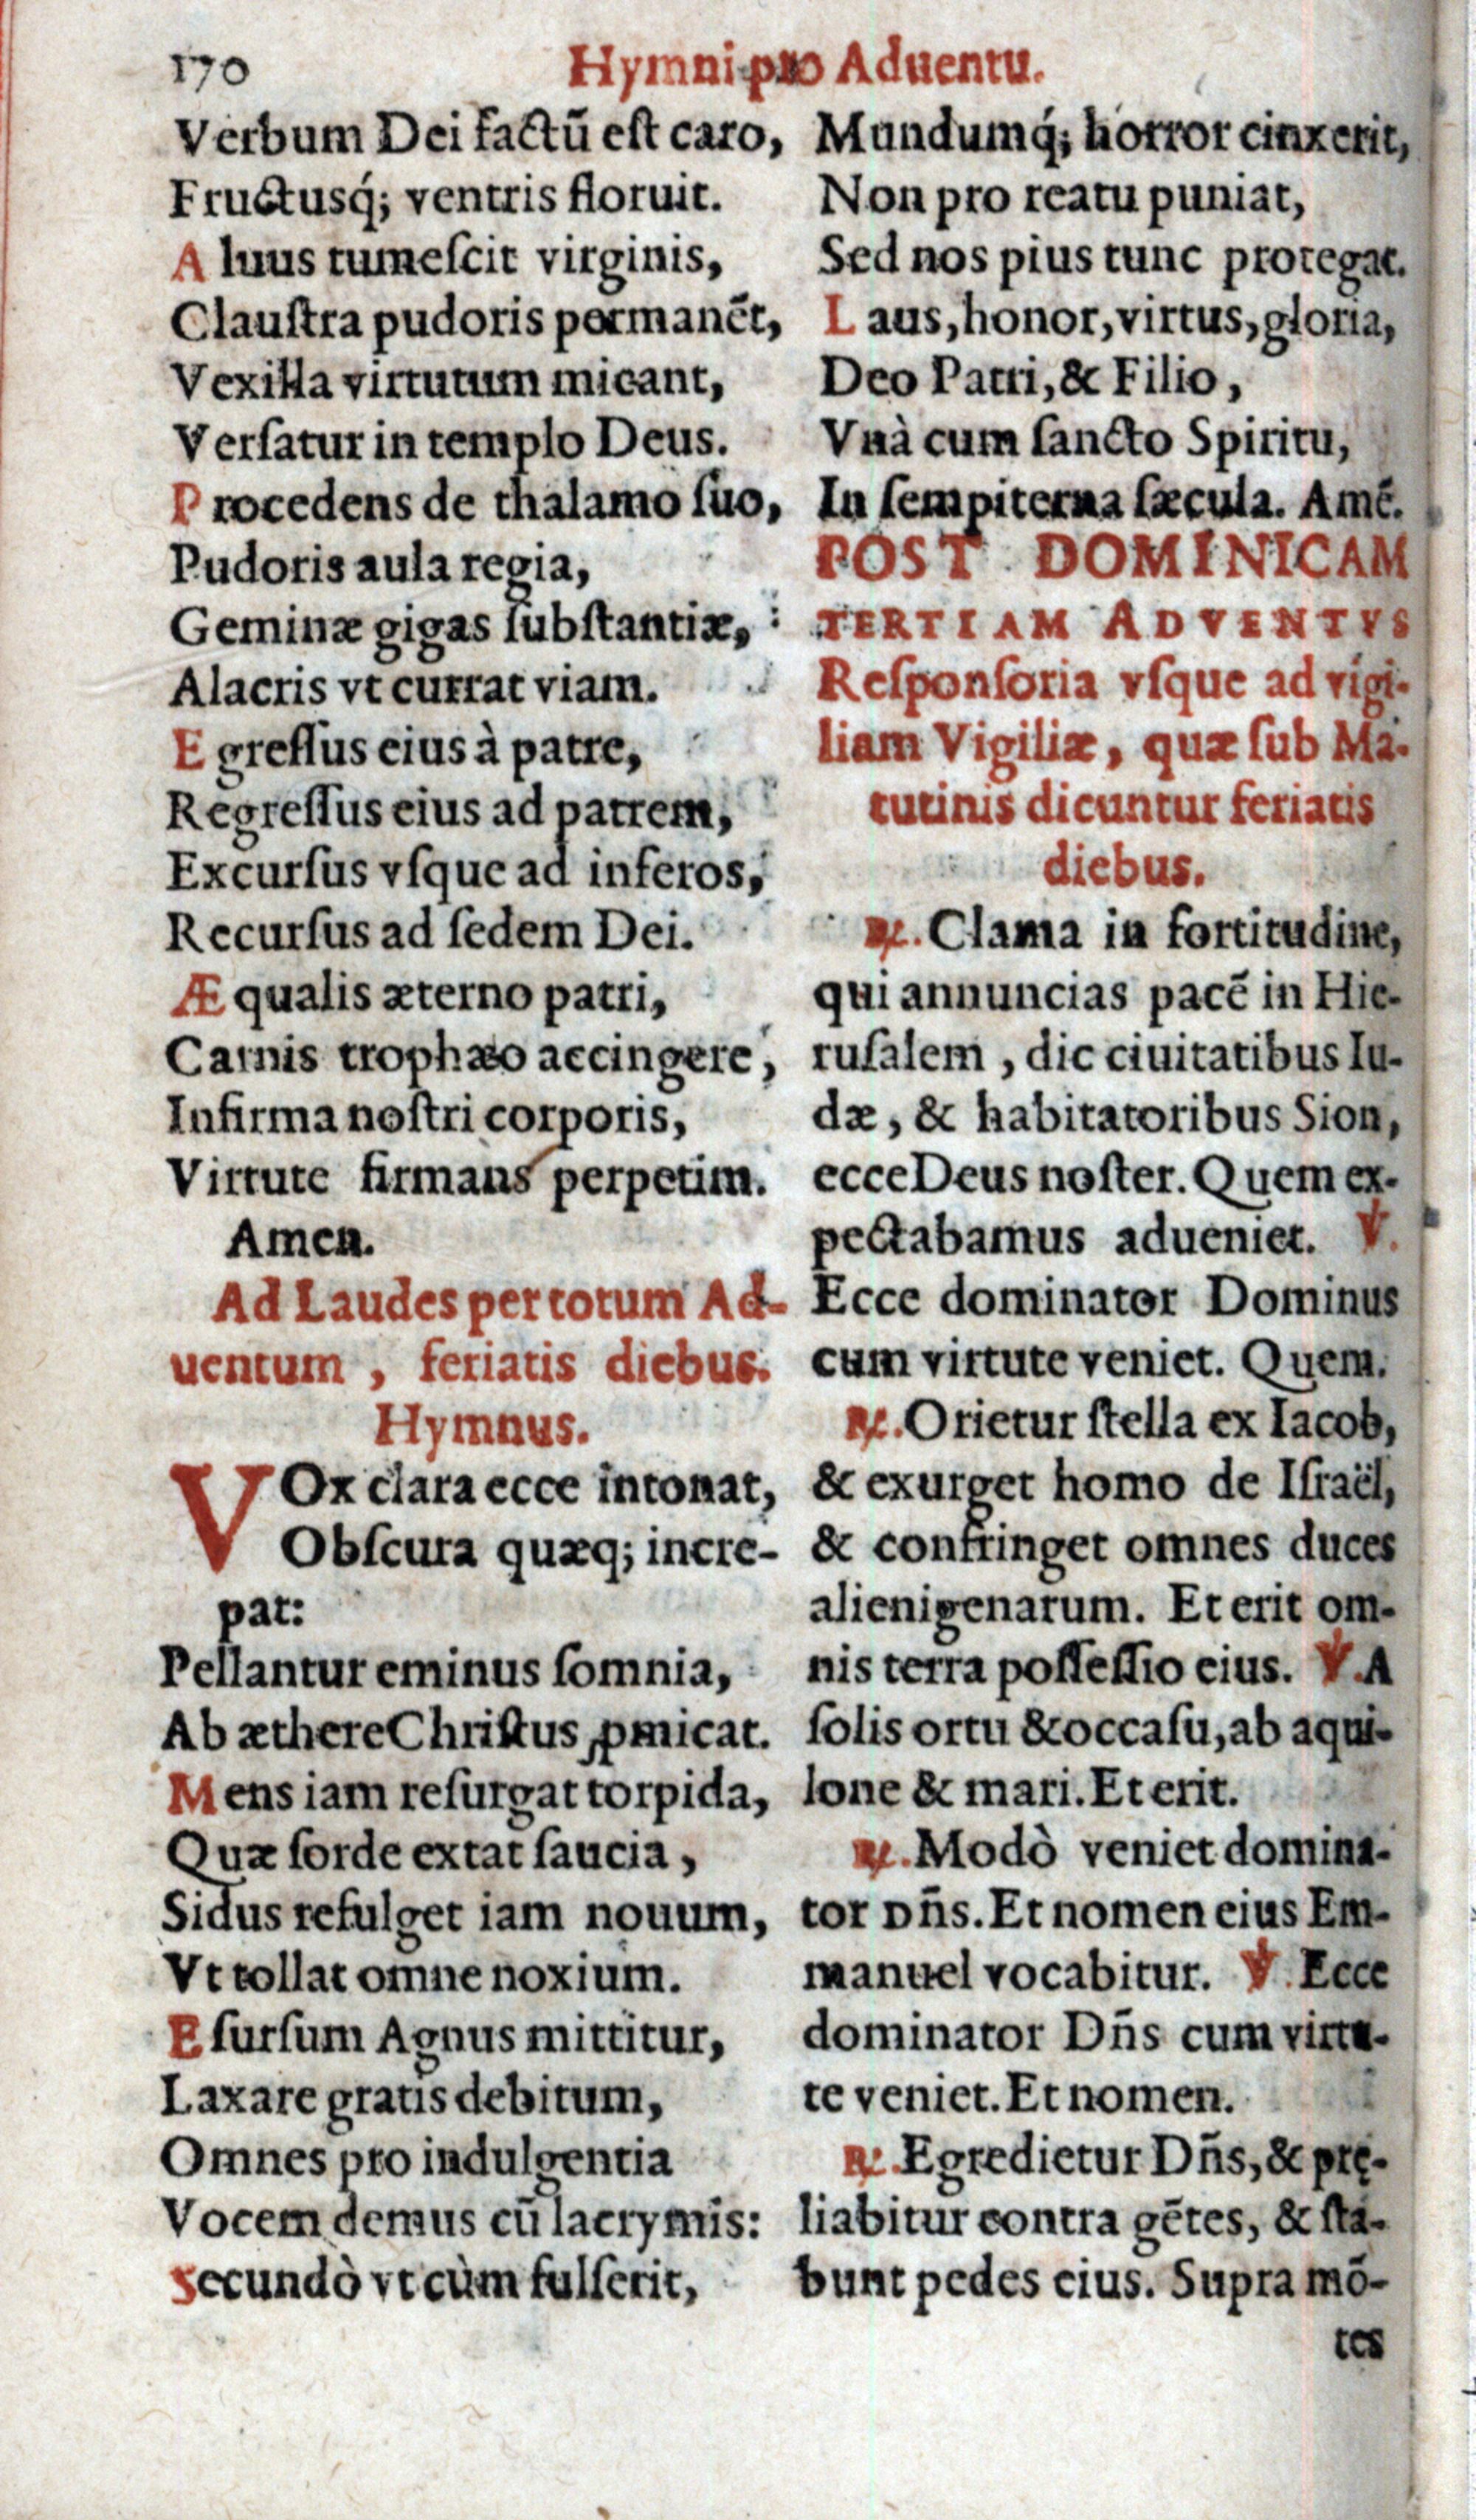 170
Hymni pro Aduentu.
Verbum Dei factũ eſt caro,
Fructusq́; ventris floruit.
A luus tumeſcit virginis,
Clauſtra pudoris permanẽt,
Vexilla virtutum micant,
Verſatur in templo Deus.
P rocedens de thalamo ſuo,
Pudoris aula regia,
Geminæ gigas ſubſtantiæ,
Alacris vt currat viam.
E greſſus eius à patre,
Regreſſus eius ad patrem,
Excurſus vſque ad inferos,
Recurſus ad ſedem Dei.
Æ qualis æterno patri,
Carnis trophæo accingere,
Infirma noſtri corporis,
Virtute firmans perpetim.
Amen.
Ad Laudes per totum Ad-
uentum , feriatis diebus.
Hymnus.
VOx clara ecce intonat,
Obſcura quæq; incre-
pat:
Pellantur eminus ſomnia,
Ab æthere Chriſtus ꝓmicat.
M ens iam reſurgat torpida,
Quæ ſorde extat ſaucia,
Sidus refulget iam nouum,
Vt tollat omne noxium.
E ſurſum Agnus mittitur,
Laxare gratis debitum,
Omnes pro indulgentia
Vocem demus cũ lacrymis:
Secundò vt cùm fulſerit,
Mundumq́; horror cinxerit,
Non pro reatu puniat,
Sed nos pius tunc protegat.
L aus, honor, virtus, gloria,
Deo Patri, & Filio,
Vnà cum ſancto Spiritu,
In ſempiterna ſæcula. Amẽ.
POST DOMINICAM
TERTIAM ADVENTVS
Reſponſoria vſque ad vigi-
liam Vigiliæ, quæ ſub Ma-
tutinis dicuntur feriatis
diebus.
℟. Clama in fortitudine,
qui annuncias pacẽ in Hie-
ruſalem , dic ciuitatibus Iu-
dæ, & habitatoribus Sion,
ecce Deus noſter. Quem ex-
pectabamus adueniet. ℣.
Ecce dominator Dominus
cum virtute veniet. Quem.
℟. Orietur ſtella ex Iacob,
& exurget homo de Iſraël,
& confringet omnes duces
alienigenarum. Et erit om-
nis terra poſſeſſio eius. ℣. A
ſolis ortu & occaſu, ab aqui-
lone & mari. Et erit.
℟. Modò veniet domina-
tor Dñs. Et nomen eius Em-
manuel vocabitur. ℣. Ecce
dominator Dñs cum virtu-
te veniet. Et nomen.
℟. Egredietur Dñs, & prę-
liabitur contra gẽtes, & ſta-
bunt pedes eius. Supra mõ-
tes